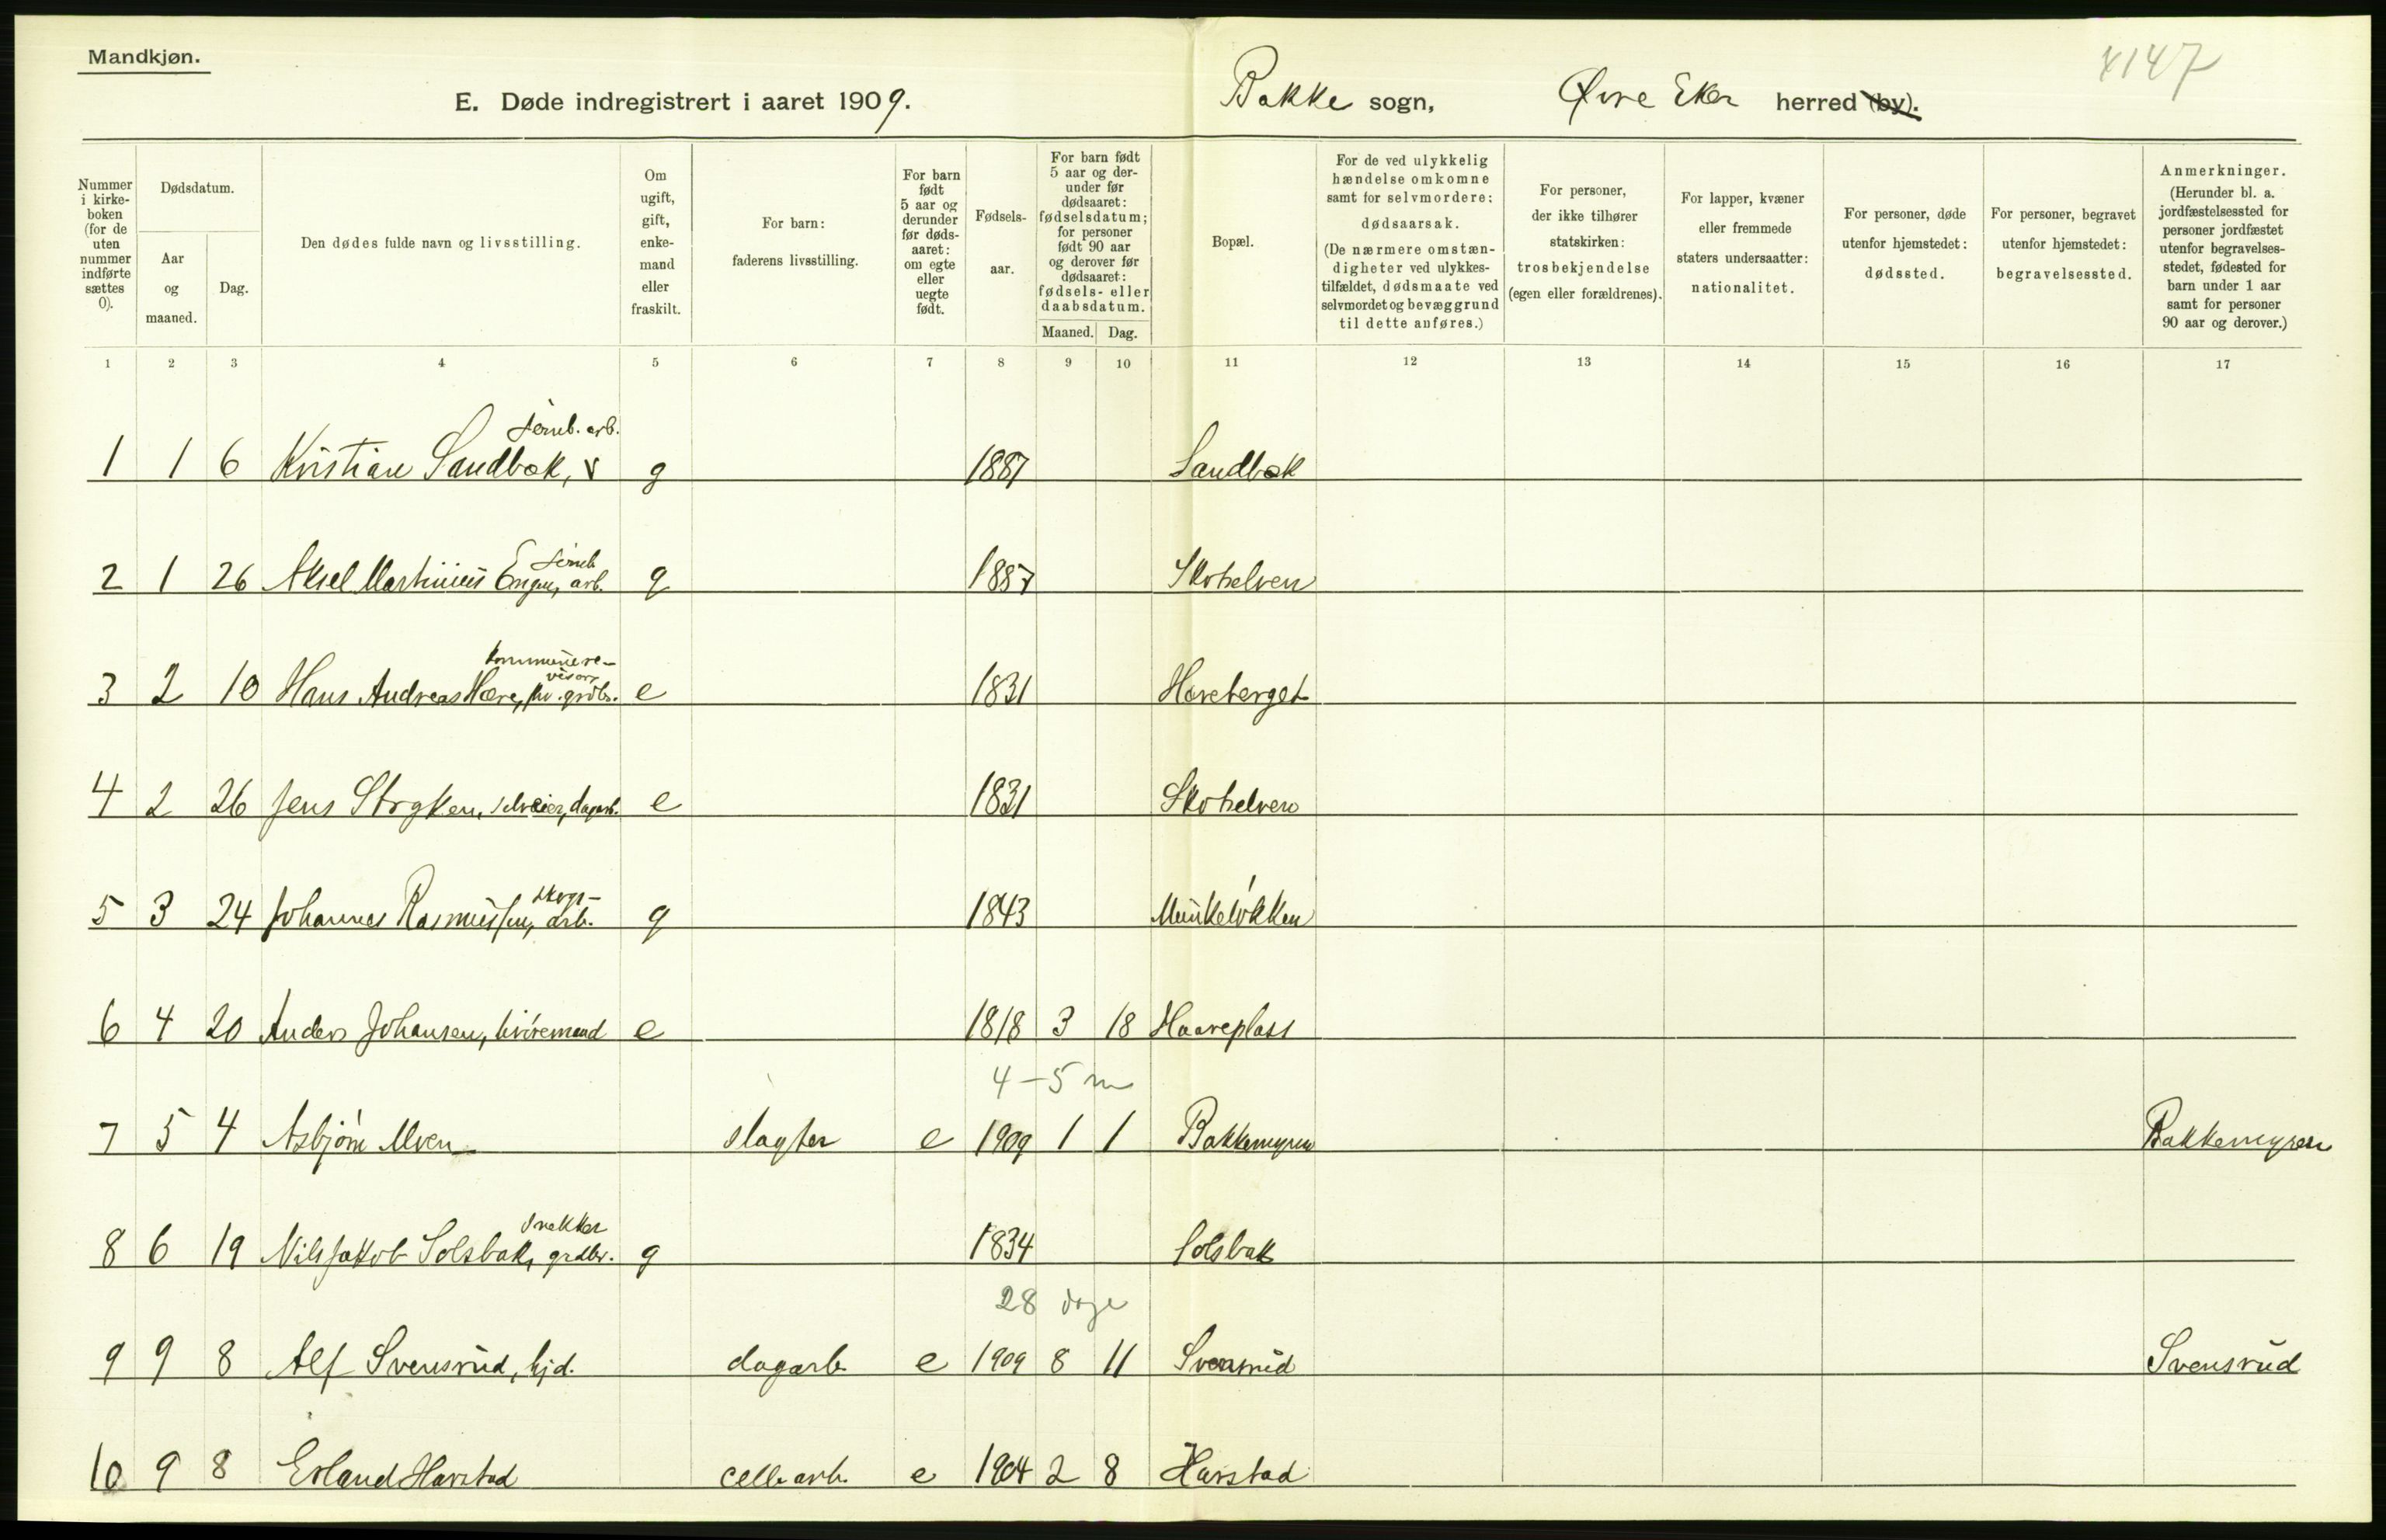 Mandkjøn.
4147
E. Døde indregistrert i aaret 1909.
Bakke sogn, Øvre Eker herred (by).
Nummer i kirke-boken (for de uten nummer indførte sættes 0).
Dødsdatum.
Aar og maaned.
Dag.
Den dødes fulde navn og livsstilling.
Om ugift, gift, enke-mand eller fraskilt.
For barn: faderens livsstilling.
For barn født 5 aar og derunder før døds-aaret: om egte eller uegte født.
Fødsels-aar.
For barn født 5 aar og der-under før dødsaaret: fødselsdatum; for personer født 90 aar og derover før dødsaaret: fødsels- eller daabsdatum.
Maaned. Dag.
Bopæl.
For de ved ulykkelig hændelse omkomne samt for selvmordere: dødsaarsak. (De nærmere omstæn-digheter ved ulykkes-tilfældet, dødsmaate ved selvmordet og bevæggrund til dette anføres.)
For personer, der ikke tilhører statskirken: trosbekjendelse (egen eller forældrenes).
For lapper, kvæner eller fremmede staters undersaatter: nationalitet.
For personer, døde utenfor hjemstedet: dødssted.
For personer, begravet utenfor hjemstedet: begravelsessted.
Anmerkninger. (Herunder bl. a. jordfæstelsessted for personer jordfæstet utenfor begravelses-stedet, fødested for barn under 1 aar samt for personer 90 aar og derover.)
1 2 3 4 5 6 7 8 9 10 11 12 13 14 15 16 17
jernb. arb.
1 1 6 Kristian Sandbæk, g 1887 Sandbæk
jernb
2 1 26 Aksel Martinius Engen, arb. g 1887 Skotselven
kommunere-
visor,
3 2 10 Hans Andreas Hære, fhv. grdbr. e 1831 Hæreberget
4 2 26 Jens Stryken, selveier, dagarb. e 1831 Skotselven
skogs-
5 3 24 Johannes Rasmussen, arb. g 1843 Munkeløkken
6 4 20 Anders Johansen, livøremand e 1818 3 18 Haareplass
4 - 5 m
7 5 4 Asbjørn Moen slagter e 1909 1 1 Bakkemyren Bakkemyren
snekker
8 6 19 Nils Jakob Solsbak, grdbr. g 1834 Solsbak
28 dage
9 9 8 Alf Svensrud, hjd. dagarb. e 1909 8 11 Svensrud Svensrud
10 9 8 Erland Harstad cellarb. e 1904 2 8 Harstad